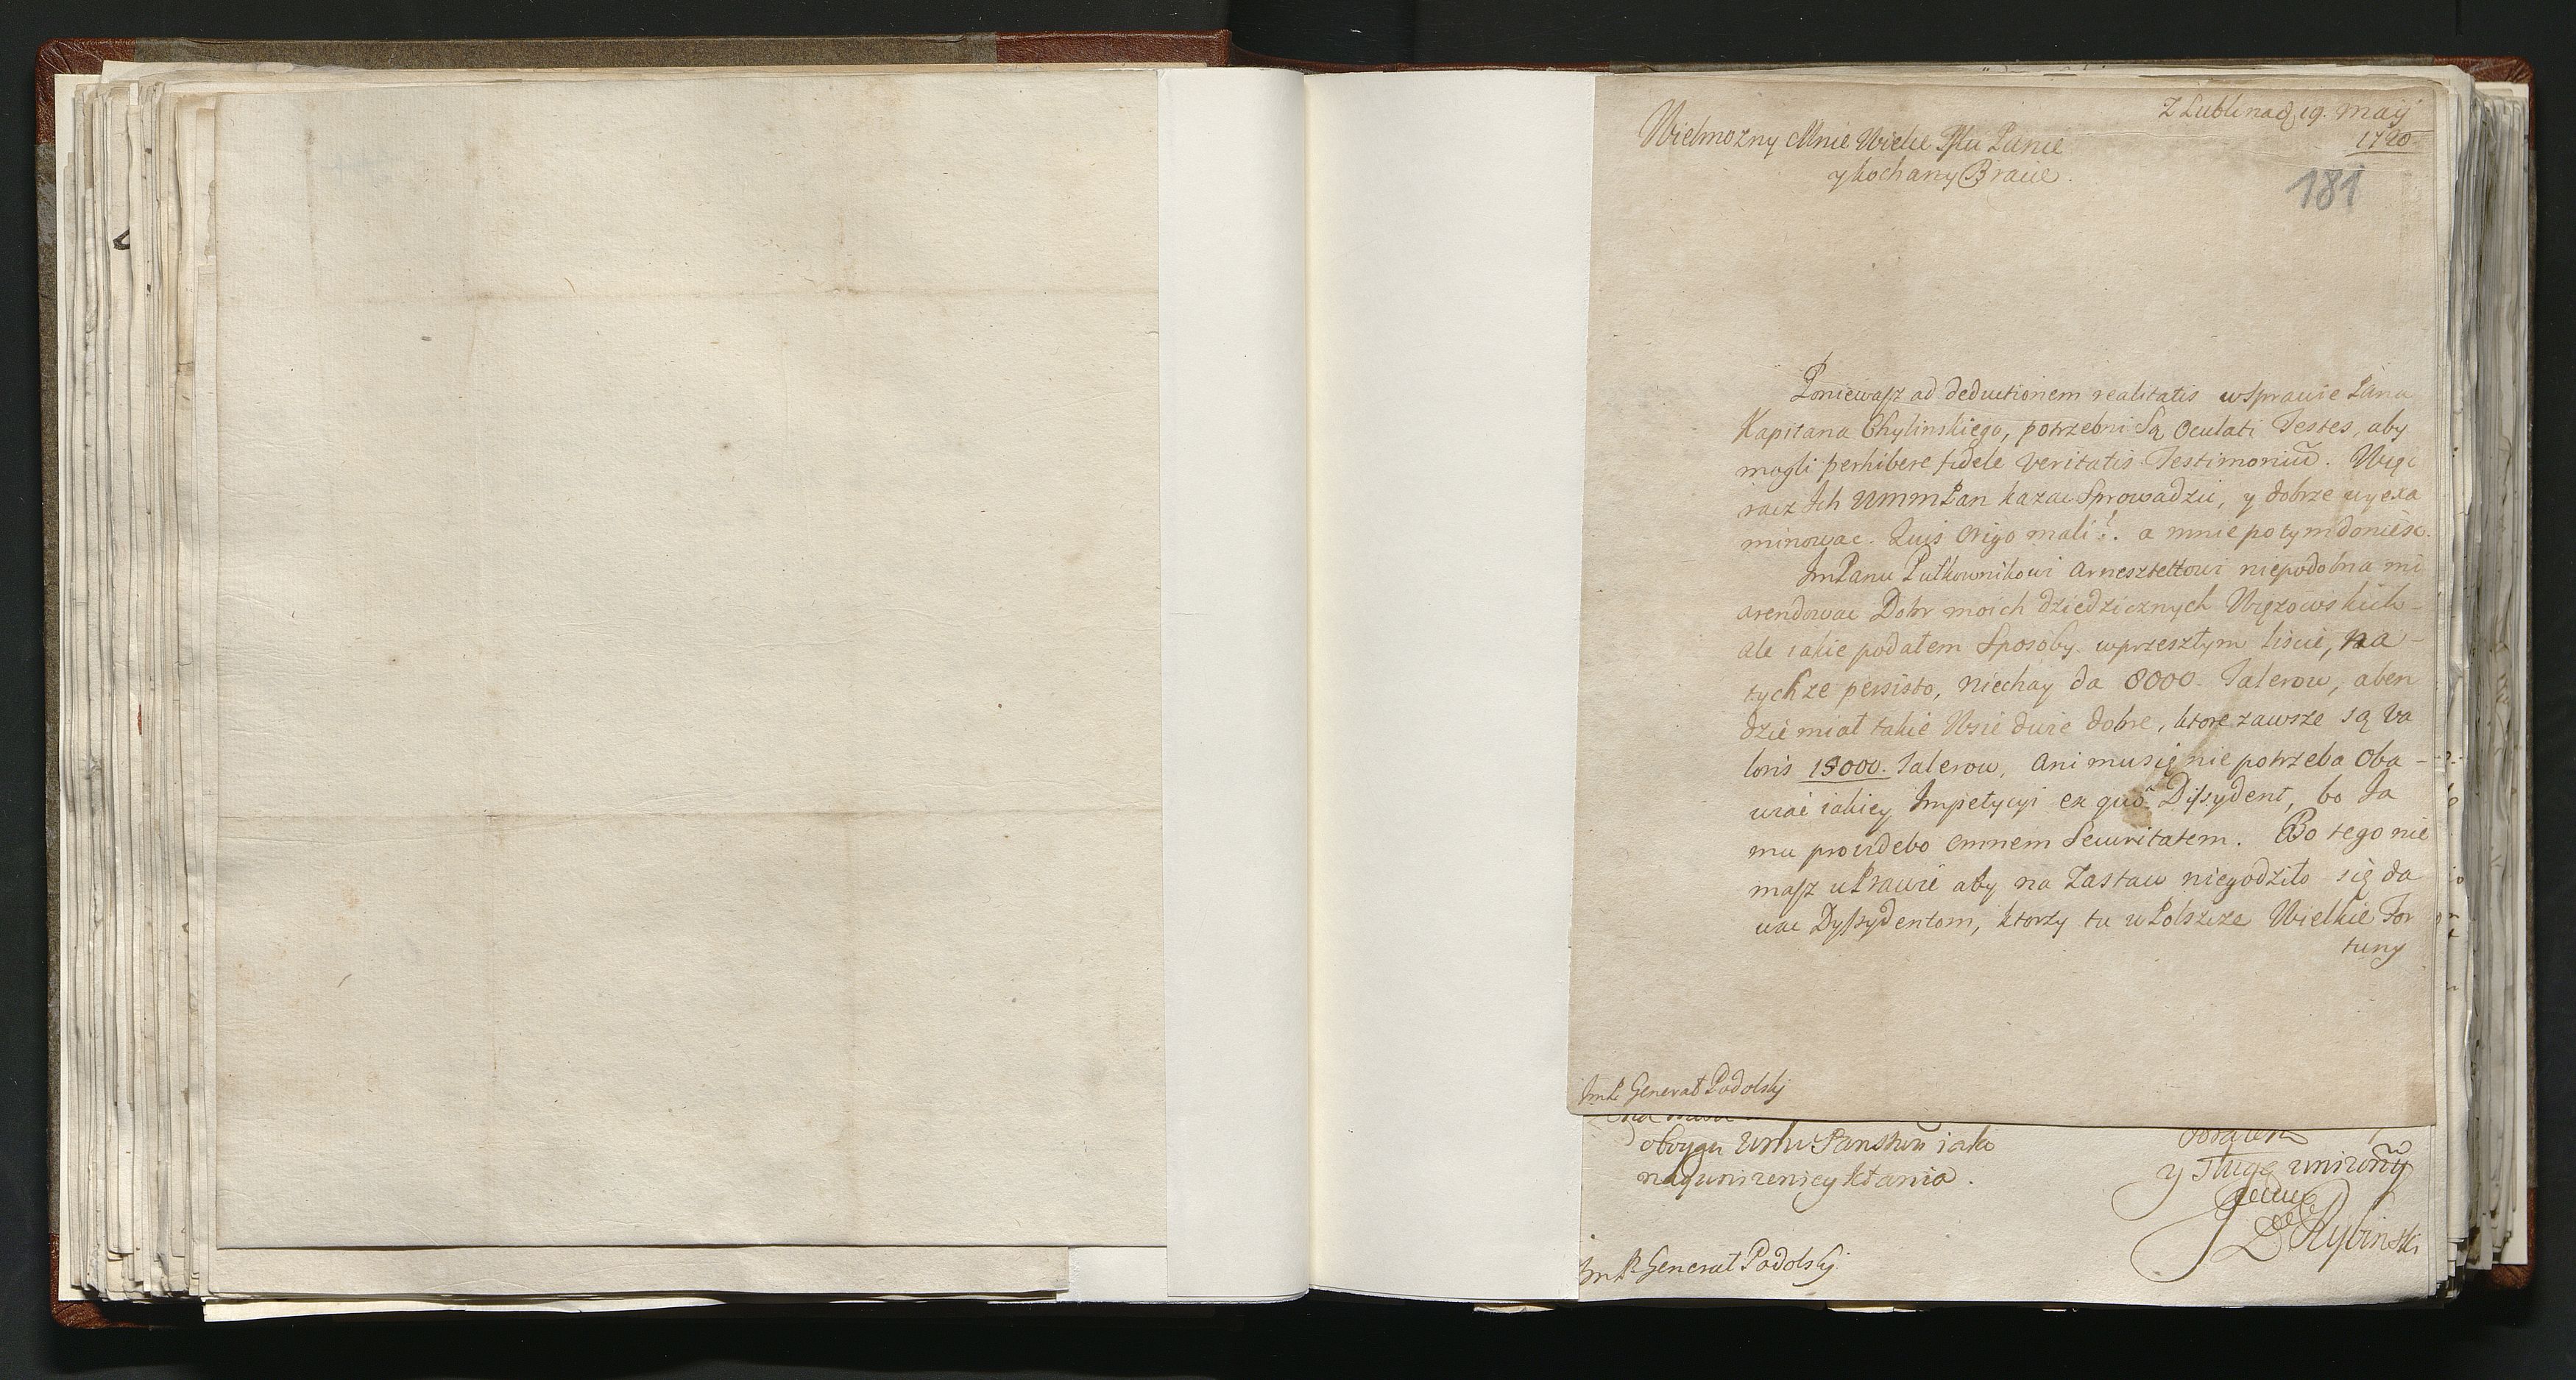 Z Lublina d 19. maij
1720
Wielmozny Mnie Wielce Mći Panie
y kochany Bracie.
181
Poniewasz ad deductionem realitatis w Sprawie Pana
Kapitana Chylinskiego, potrzebni Są Oculati Testes, aby
mogli perhibere fidele veritatis Testimoniu̅. Więc
racz Ich UmmPan kazac Sprowadzić, y dobrze wyexa
minowac. Quis Origo mali?. a mnie potym doniesc.
ImPanu Pułkownikowi Arnesztettowi niepodobna mi
arendowac Dobr moich dziedzicznych Węzowskich
ale iakie podałem Sposoby w przeszłym liscie, na
tychze persisto, niechay da 8000. Talerow, a ben
dzie miał takie Wsie dwie dobre, ktore zawsze są va
loris 18000. Talerow, Ani mu się nie potrzeba Oba
wiać iakiey Impetycyi ex quo Dissydent, bo Ja
mu providebo omnem Securitatem. Bo tego nie
masz w Prawie aby na Zastaw niegodziło się da
wac Dyssydentom, ktorzy tu w Polszcze Wielkie For
tuny
ImP. Generał Podolskj
oboygu Panstwu iak
naguniżeniey kłania.
y sługą uniżony
Rybinski
ImP. Generał Podolskj